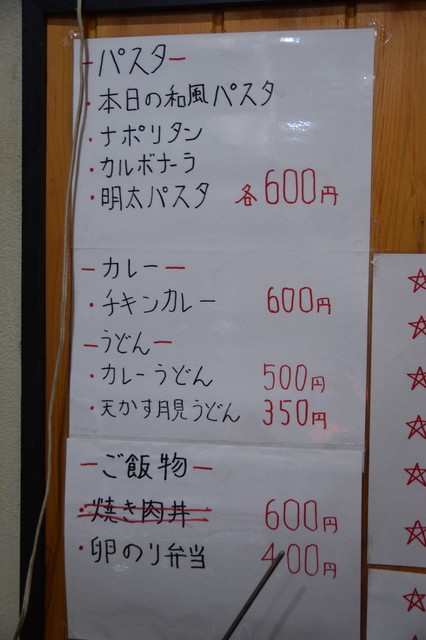 -パスタ-
・本日の和風パスタ
・ナポリタン
・カルボナーラ
・明太パスタ 各600円
-カレー-
・チキンカレー 600円
-うどん-
・カレーうどん 500円
・天かす月見うどん 350円
-ご飯物-
・焼き肉丼 600円
・卵のり弁当 400円